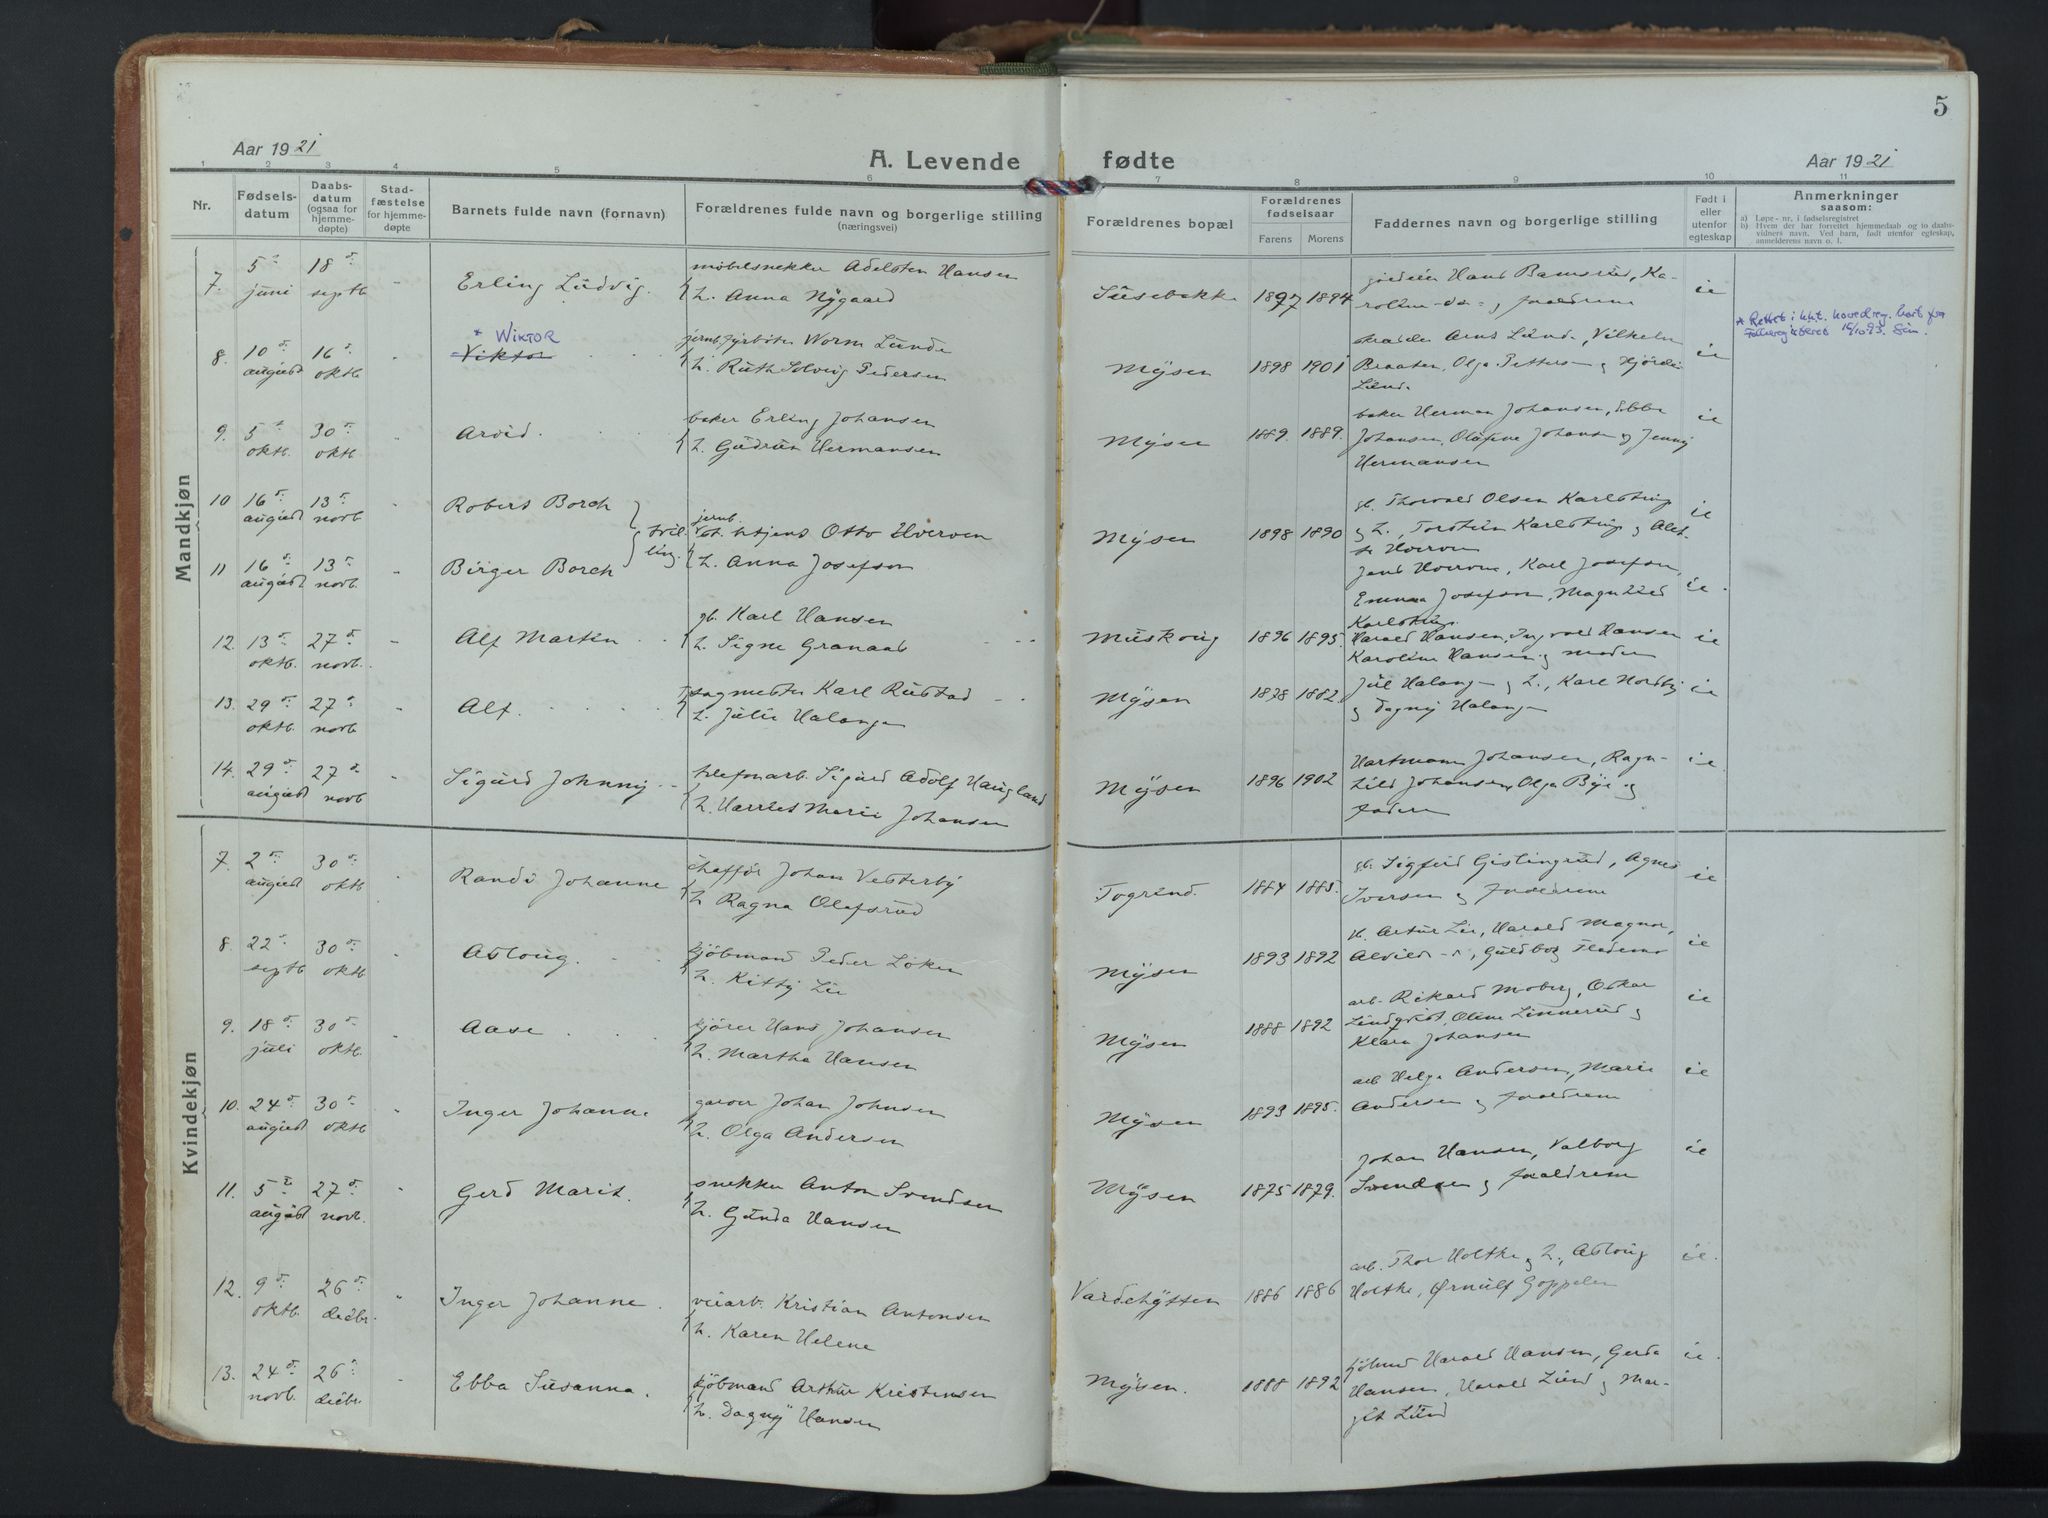 5
Aar 1921
A. Levende fødte
Aar 1921
1 2 3 4 5 6 7 8 9 10 11
Nr.
Fødsels-
datum
Daabs-
datum
(ogsaa for
hjemme-
døpte)
Stad-
fæstelse
for hjemme-
døpte
Barnets fulde navn (fornavn)
Forældrenes fulde navn og borgerlige stilling
(næringsvei)
Forældrenes bopæl
Forældrenes
fødselsaar
Farens Morens
Faddernes navn og borgerlige stilling
Født i
eller
utenfor
egteskap
Anmerkninger
saasom:
a) Løpe-nr. i fødselsregistret
b) Hvem der har forrettet hjemmedaab og to daabs-
vidners navn. Ved barn, født utenfor egteskap,
anmelderens navn o. l.
Mandkjøn
7. 5 juni 18 septb. Erling Ludvig.
møbelsnekker Adelsten Hansen
h. Anna Nygaard
Susebakke 1897 1894
Hans Bamsrud, Ka-
roline do og forældrene
ie
8. 10 august 16 oktb.
* WIKTOR
Viktor
jernb.fyrbøter Worm Lunde
h. Ruth Solveig Pedersen
Mysen 1898 1901
Arnt Lunde, Vilhelm
Braaten, Olga Petters og Hjördis
Lunde
ie
* Rettet i hht. hovedreg. bort fra
Folkeregisteret 16/10 93.
9. 5 oktb. 30 oktb. Arvid.
baker Erling Johansen
h. Gudrun Hermansen
Mysen 1889. 1889.
baker Herman Johansen, Ebba
Johansen, Olufine Johansen og Jenny
Hermansen
ie
10 16 august 13 novb. Robert Borch
tvil
ling.
jernb.
Otto Hverven
h. Anna Josefson
Mysen 1898 1890
gb. Thorvald Olsen Karlstring
og h., Torstein Karlstring og
Hverven
ie
11 16 august 13 novb. Birger Borch
Jens Hverven, Karl Josefson,
Emma Josefson, Magnhild
Karlstring.
ie.
12. 13 oktb. 27 novb. Alf Martin
gb. Karl Hansen
h. Signe Granaas
Muskoug 1896 1895.
Harald Hansen, Ingvald Hansen
Karoline Hansen og moder
ie
13. 29 oktb. 27 novb. Alf.
sagmester Karl Rustad
h. Julie Halangen
Mysen 1878 1882.
Jul Halangen og h., Karl Nordby
og Dagny Halangen
ie
14. 29 august 27 novb Sigurd Johnny
telefonarb. Sigurd Adolf Haugland
h. Harriet Marie Johansen
Mysen 1896 1902
Hartmann Johansen, Ragn-
hild Johansen, Olga Bye og
faderen
ie
Kvindekjøn
7. 2 august 30 oktb Randi Johanne
chaffør Johan Vesterby
h. Ragna Olafsrud
Togrind. 1884 1885.
gb. Sigfrid Gislingrud, Agnes
Iversen og forældrene
ie
8. 22 septb 30 oktb Astoug.
kjöbmand Peder Löken
h. Kitty Lie
Mysen 1893 1892
Artur Lie, Harald Magnor,
Alvilde Guldborg Flademo
ie
9. 18 juli 30 oktb. Aase
kjører Hans Johansen
h. Martha Hansen
Mysen 1888 1892
arb. Rikard Moberg, Oskar
Lindqvist, Oline Linnerud og
Klara Johansen
ie
10. 24 august 30 oktb Inger Johanne
garver Johan Johnsen
h. Olga Andersen
Mysen 1893 1895.
arb Helge Andersen, Marie
Andersen og forældrene
ie
11. 5 august 27 novb. Gerd Marit.
snekker Anton Svendsen
h. Gunda Hansen
Mysen 1875 1879.
Johan Hansen, Valborg
Svendsen og forældrene
ie
12. 9 oktb. 26 decbr. Inger Johanne.
veiarb. Kristian Antonsen
h. Karen Helene
Vardehytten 1886 1886
arb. Thor Holthe og h., Astoug
Holthe, Ørnulf Goppelen
ie.
13. 24 novb. 26 decbr Ebba Susanna.
kjöbmand Arthur Kristensen
h. Dagny Hansen
Mysen. 1888 1892
kjöbmd Harald Hansen, Gerda
Hansen, Harald Lund og Mar-
git Lund
ie.